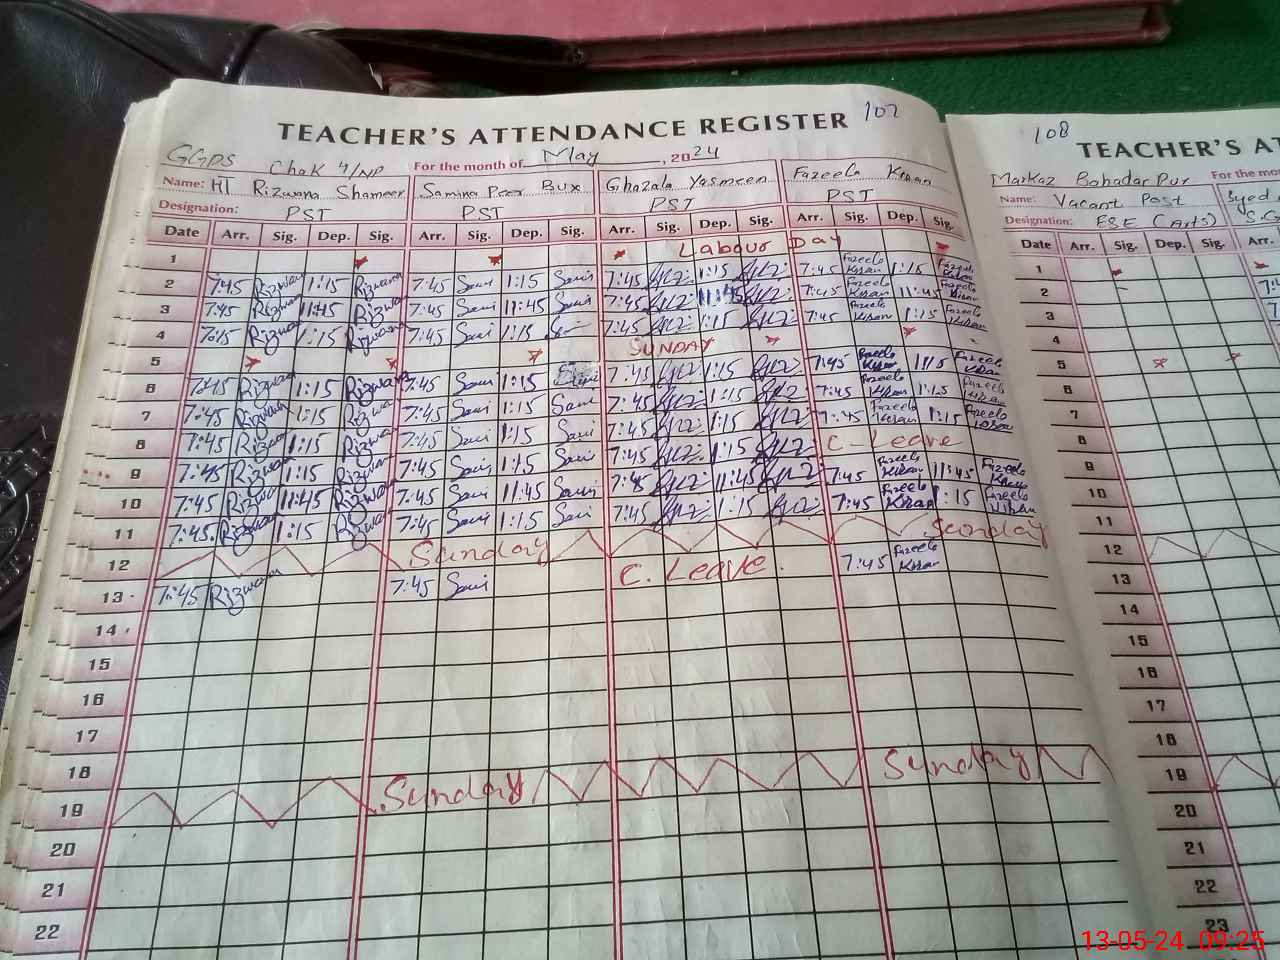 107
TEACHER'S ATTENDANCE REGISTER
GGPS Chak 4/NP For the month of May, 2024
Name: HT Rizwana Shameer Samina Peer Bux Ghazala Yasmeen Fazeela Kiran
Designation: PST PST PST PST
Date Arr. Sig. Dep. Sig. Arr. Sig. Dep. Sig. Arr. Sig. Dep. Sig. Arr. Sig. Dep. Sig.
1 Labour Day
2 7:45 Rizwana 1:15 Rizwana 7:45 Sami 1:15 Sami 7:45 1:15 7:45 Fazeela Kiran 1:15 Fazeela Kiran
3 7:45 Rizwana 11:45 Rizwana 7:45 Sami 11:45 Sami 7:45 11:45 7:45 Fazeela Kiran 11:45 Fazeela Kiran
4 7:45 Rizwana 1:15 Rizwana 7:45 Sami 1:15 7:45 1:15 7:45 Fazeela Kiran 1:15 Fazeela Kiran
5 SUNDAY
6 7:45 Rizwana 1:15 Rizwana 7:45 Sami 1:15 Sami 7:45 1:15 7:45 Fazeela Kiran 1:15 Fazeela Kiran
7 7:45 Rizwana 1:15 Rizwana 7:45 Sami 1:15 Sami 7:45 1:15 7:45 Fazeela Kiran 1:15 Fazeela Kiran
8 7:45 Rizwana 1:15 Rizwana 7:45 Sami 1:15 Sami 7:45 1:15 7:45 Fazeela Kiran 1:15 Fazeela Kiran
9 7:45 Rizwana 1:15 Rizwana 7:45 Sami 1:15 Sami 7:45 1:15 C-Leave
10 7:45 Rizwana 11:45 Rizwana 7:45 Sami 11:45 Sami 7:45 11:45 7:45 Fazeela Kiran 11:45 Fazeela Kiran
11 7:45 Rizwana 1:15 Rizwana 7:45 Sami 1:15 Sami 7:45 1:15 7:45 Fazeela Kiran 1:15 Fazeela Kiran
12 Sunday Sunday
13 7:45 Rizwana 7:45 Sami C. Leave. 7:45 Fazeela Kiran
14
15
16
17
18
19 Sunday Sunday
20
21
22
108
TEACHER'S AT
Markaz Bahadar Pur For the mo
Name: Vacant Post Syed
Designation: ESE (Arts) S.C
Date Arr. Sig. Dep. Sig. Arr.
1
2
3
4
5
6
7
8
9
10
11
12
13
14
15
16
17
18
19
20
21
22
23
13-05-24 09:25